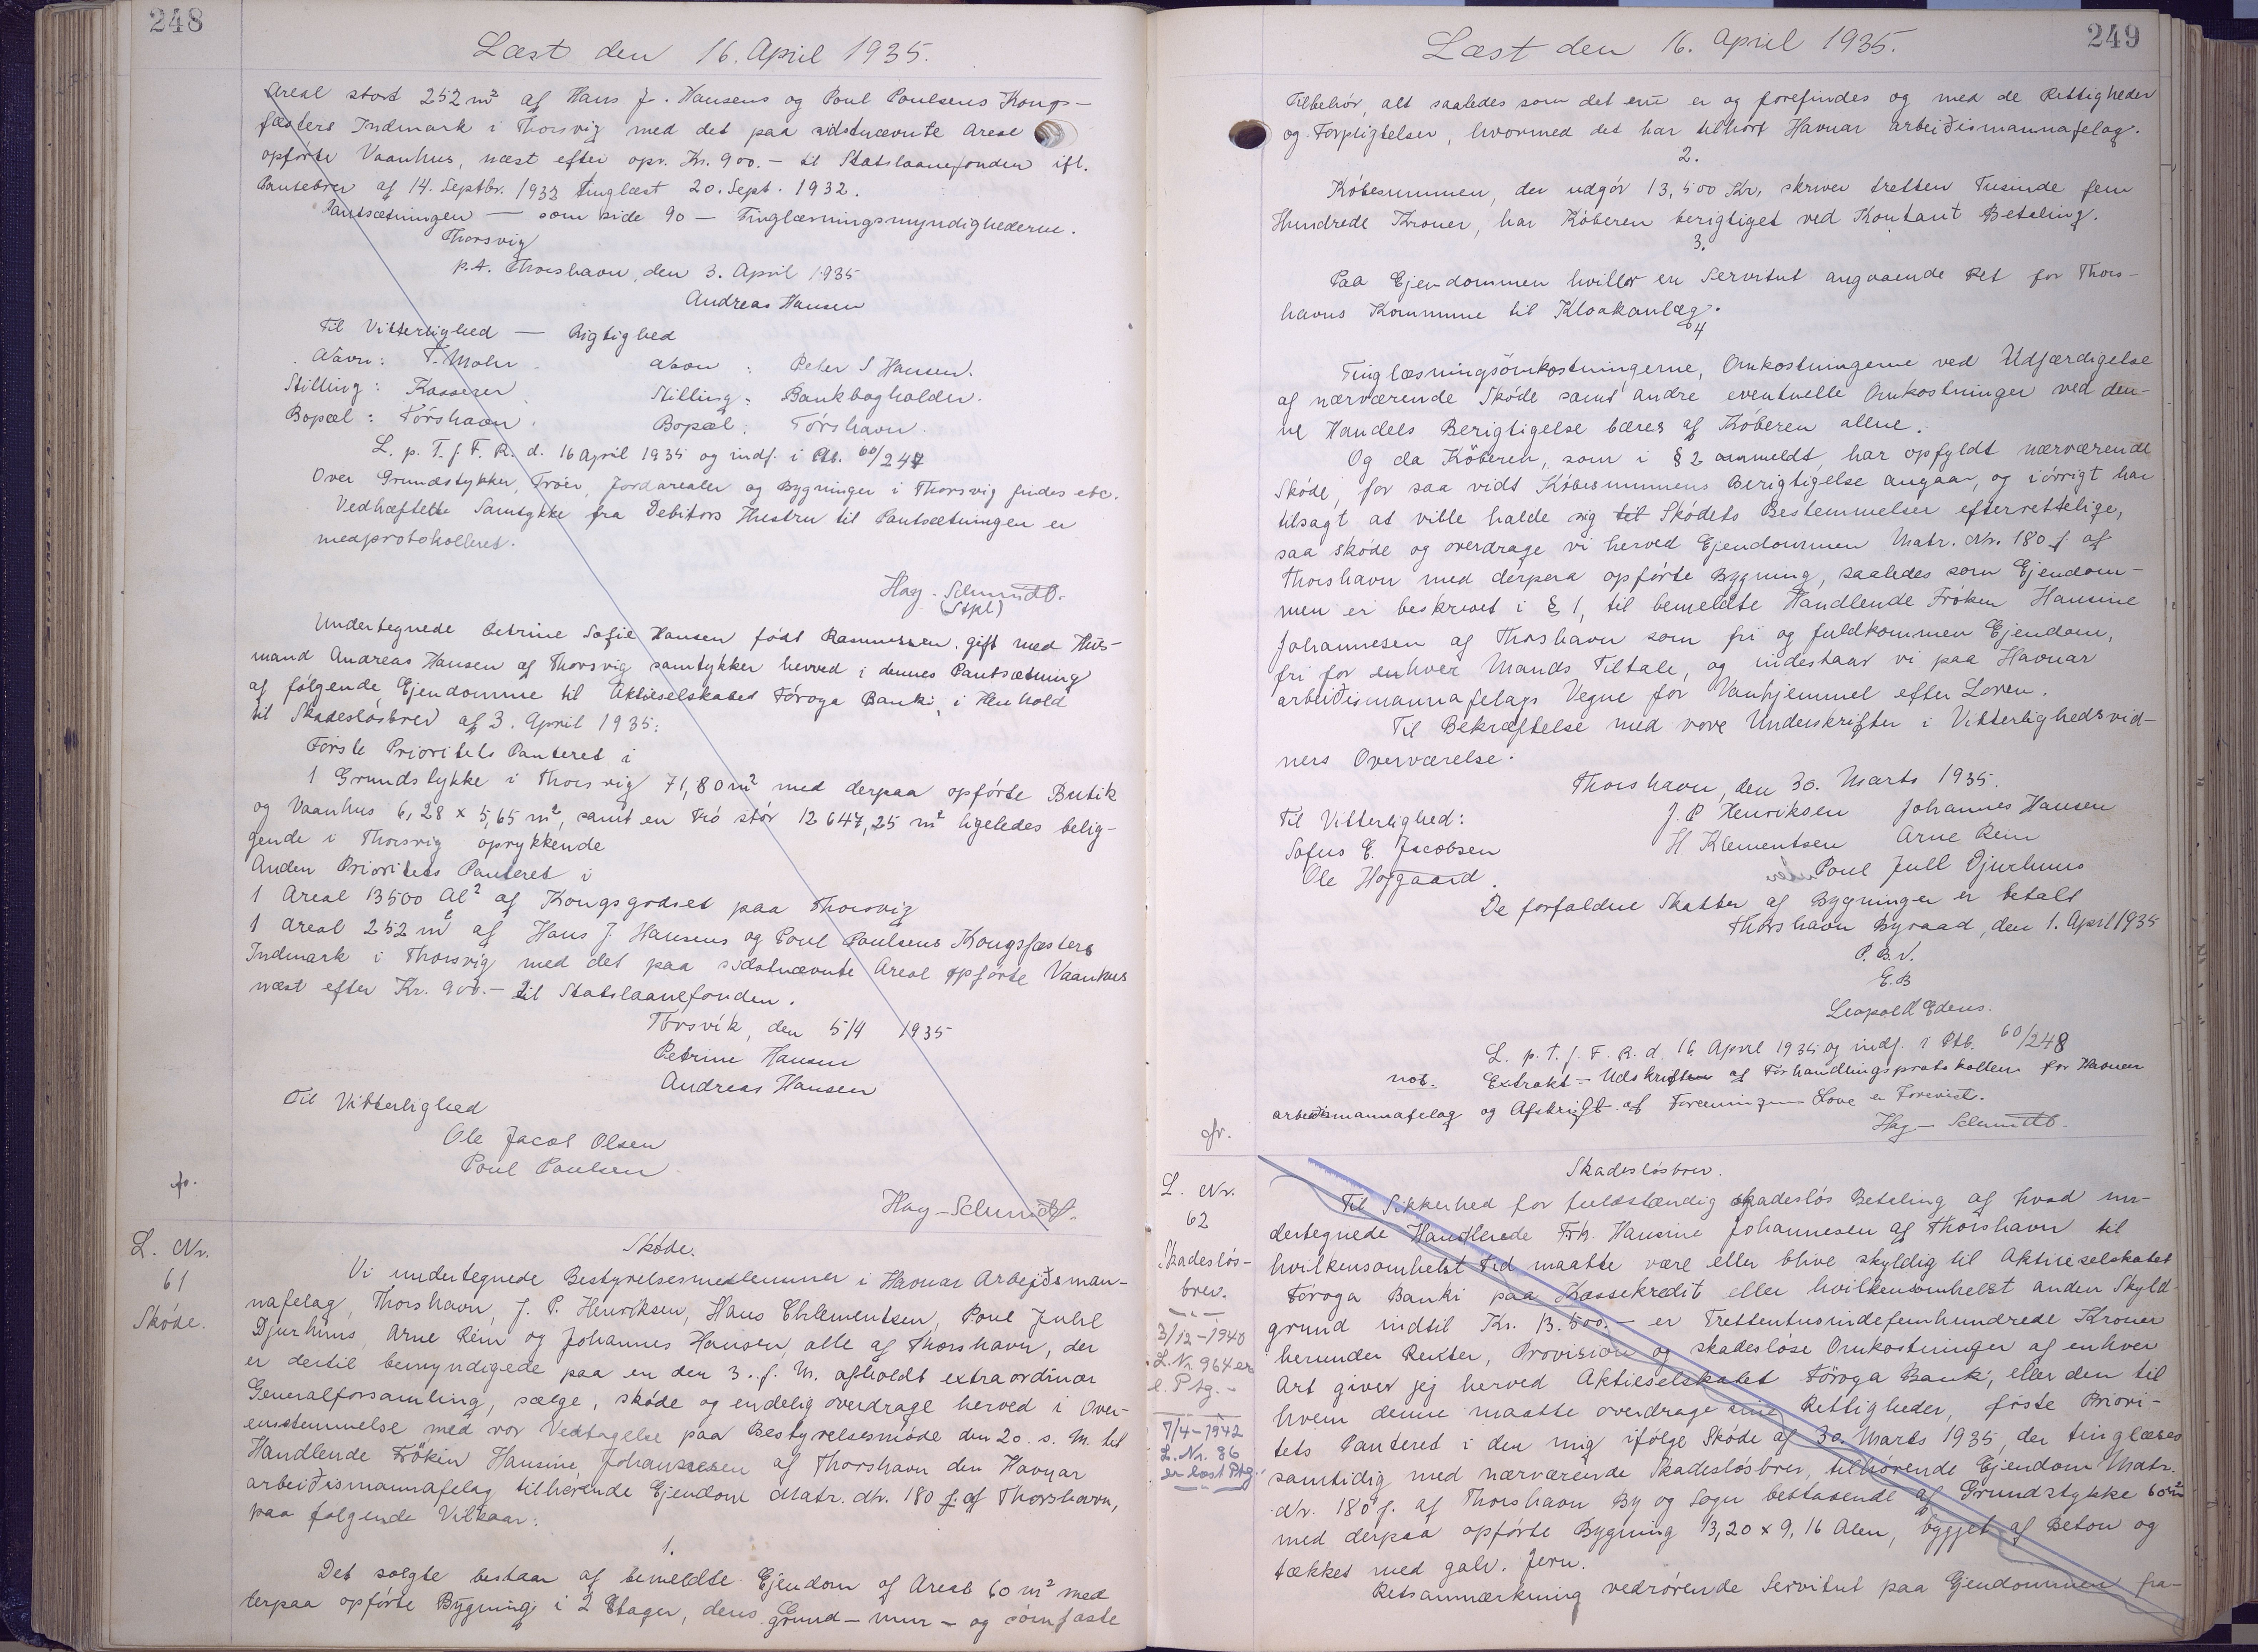 248
Læst den 16. April 1935.
Areal stort 252 m² af Hans J. Hansens og Poul Poulsens Kongs-
fæsters Indmark i Thorsvig med det paa sidstnævnte Areal
opførte Vaanhus, næst efter opr. Kr. 900.- til Statslaanefonden ifl.
Pantebrev af 14. Septbr. 1932 tinglæst 20. Sept. 1932.
Pantsætningen — som side 90 — Tinglæsningsmyndighederne.
Thorsvig
p.t. Thorshavn, den 3. April 1935
Andreas Hansen
Til Vitterlighed — Rigtighed
Navn: T. Mohr Navn: Peter S Hansen.
Stilling: Kasserer Stilling: Bankbogholder.
Bopæl: Tórshavn. Bopæl: Tórshavn.
L. p. T. f. F. R. d. 16 April 1935 og indf. i Ptb. 60/247
Over Grundstykker, Tróer, Jordarealer og Bygninger i Thorsvig findes etc.
Vedhæftette Samtykke fra Debitors Hustru til Pantsætningen er
medprotokolleret.
Hag-Schmidt.
(Stpl)
Undertegnede Petrine Sofie Hansen født Rasmussen, gift med Hus-
mand Andreas Hansen af Thorsvig samtykker herved i dennes Pantsætning
af følgende Ejendomme til Aktieselskabet Føroya Banki, i Henhold
til Skadesløsbrev af 3. April 1935:
Første Prioritets Panteret i
1 Grundstykke i Thorsvig 71,80 m² med derpaa opførte Butik
og Vaanhus 6,28 x 5,65 m², samt en Tró stór 12647,25 m² ligeledes belig-
gende i Thorsvig oprykkende
Anden Prioritets Panteret i
1 Areal 13500 Al² af Kongsgodset paa Thorsvig
1 Areal 252 m² af Hans J. Hansens og Poul Poulsens Kongsfæsters
Indmark i Thorsvig med det paa sidstnævnte Areal opførte Vaanhus
næst efter Kr. 900.- til Statslaanefonden.
Tórsvík, den 5/4 1935
Petrine Hansen
Andreas Hansen
Til Vitterlighed
Ole Jacob Olsen
Poul Poulsen
Hag-Schmidt.
L. Nr.
61
Skøde.
Skøde.
Vi undertegnede Bestyrelsesmedlemmer i Havnar Arbejdsman-
nafelag, Thorshavn, J. P. Henriksen, Hans Chlementsen, Poul Juhl
Djurhuus, Arne Rein og Johannes Hansen, alle af Thorshavn, der
er dertil bemyndigede paa en den 3. f. M. afholdt extraordinær
Generalforsamling, sælge, skøde og endelig overdrage herved i Over-
ensstemmelse med vor Vedtagelse paa Bestyrelsesmøde den 20. s. M. til
Handlende Frøken Hansine Johannesen af Thorshavn den Havnar
arbeiðismannafelag tilhørende Ejendom Matr. Nr. 180 f. af Thorshavn,
paa følgende Vilkaar:
1.
Det solgte bestaar af bemeldte Ejendom af Areal 60 m² med
derpaa opførte Bygning i 2 Etager, dens Grund- mur- og sømfaste
249
Læst den 16. April 1935.
Tilbehør, alt saaledes som det er og forefindes og med de Rettigheder
og Forpligtelser, hvormed det har tilhørt Havnar arbeiðismannafelag.
2.
Købesummen, der udgør 13,500 Kr, skriver tretten Tusinde fem
Hundrede Kroner, har Køberen berigtiget ved Kontant Betaling.
3.
Paa Ejendommen hviler en Servitut angaaende Ret for Thors-
havns Kommune til Kloakanlæg.
4
Tinglæsningsomkostningerne, Omkostningerne ved Udfærdigelse
af nærværende Skøde samt andre eventuelle Omkostninger ved den-
ne Handels Berigtigelse bæres af Køberen allene.
Og da Køberen, som i § 2 anmeldt, har opfyldt nærværende
Skøde, for saa vidt Købesummens Berigtigelse angaar, og iøvrigt har
tilsagt at ville holde sig til Skødets Bestemmelser efterrettelige,
saa skøde og overdrage vi herved Ejendommen Matr. Nr. 180 f af
Thorshavn med derpaa opførte Bygning, saaledes som Ejendom-
men er beskrevet i § 1, til bemeldte Handlende Frøken Hansine
Johannesen af Thorshavn som fri og fuldkommen Ejendom,
fri for enhver Mands Tiltale, og indestaar vi paa Havnar
arbeiðismannafelags Vegne for Vanhjemmel efter Loven.
Til Bekræftelse med vore Underskrifter i Vitterlighedsvid-
ners Overværelse.
Thorshavn, den 30. Marts 1935.
Til Vitterlighed: J. P Henriksen Johannes Hansen
Sofus E. Jacobsen H. Klementsen Arne Rein
Ole Højgaard. Poul Jull Djurhuus
De forfaldne Skatter af Bygninger er betalt
Thorshavn Byraad, den 1. April 1935
P. B. V.
E.B
Leopold Edens.
L. p. T. f. F. R. d. 16 April 1935 og indf. i Ptb. 60/248
not. Extrakt-Udskriften af Forhandlingsprotokollen for Havnar
arbeiðismannafelag og Afskrift af Foreningens Love er Forevist.
Hag-Schmidt.
L. Nr.
62
Skadesløs-
brev.
3/12-1940
L. Nr. 964 er
l. Ptg.-
7/4-1942
L. Nr. 86
er læst Ptg.
Skadesløsbrev.
Til Sikkerhed for fuldstændig skadesløs Betaling af hvad un-
dertegnede Handlende Frk. Hansine Johannesen af Thorshavn til
hvilkensomhelst Tid maatte være eller blive skyldig til Aktieselskabet
Føroya Banki paa Kassekredit eller hvilkensomhelst anden Skyld-
grund indtil Kr. 13.500.- er Trettentusindefemhundrede Kroner
herunder Renter, Provision og skadesløse Omkostninger af enhver
Art giver jeg herved Aktieselskabet Føroya Banki, eller den til
hvem denne maatte overdrage sine Rettigheder, første Priori-
tets Panteret i den mig ifølge Skøde af 30. Marts 1935, der tinglæses
samtidig med nærværende Skadesløsbrev, tilhørende Ejendom Matr.
Nr. 180 f. af Thorshavn By og Sogn bestaaende af Grundstykke 60 m²
med derpaa opførte Bygning 13,20 x 9,16 Alen, bygget af Beton og
tækket med galv. Jern.
Retsanmærkning vedrørende Servitut paa Ejendommen fra-